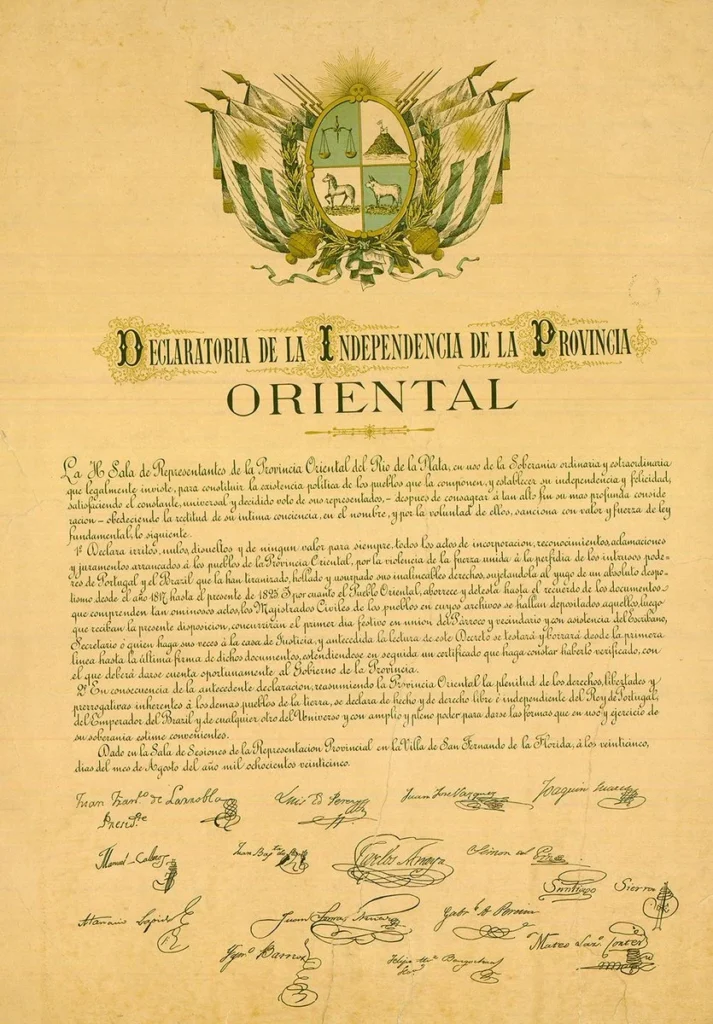 DECLARATORIA DE LA INDEPENDENCIA DE LA PROVINCIA
ORIENTAL
La H Sala de Representantes de la Provincia Oriental del Rio de la Plata, en uso de la Soberania ordinaria y estraordinaria
que legalmente inviste, para constituir la existencia politica de los pueblos que la componen, y establecer su independencia y felicidad,
satisfaciendo el constante, universal y decidido voto de sus representados,- despues de consagrar á tan alto fin su mas profunda conside
racion - obedeciendo la rectitud de su íntima conciencia, en el nombre, y por la voluntad de ellos, sanciona con valor y fuerza de ley
fundamental, lo siguiente.
1º Declara irritos, nulos, disueltos y de ningun valor para siempre, todos los actos de incorporacion, reconocimientos, aclamaciones
y juramentos arrancados á los pueblos de la Provincia Oriental, por la violencia de la fuerza unida à la perfidia de los intrusos pode-
res de Portugal y el Brazil que la han tiranizado, hollado y usurpado sus inalineables derechos, sujetandola al yugo de un absoluto despo-
tismo desde el año 1817, hasta el presente de 1825. I por cuanto el Pueblo Oriental, aborrece y detesta hasta el recuerdo de los documentos
que comprenden tan ominosos actos, los Magistrados Civiles de los pueblos en cuyos archivos se hallan depositados aquellos, luego
que reciban la presente disposicion, concurriran el primer dia festivo en union del Párroco y vecindario y con asistencia del Escribano,
Secretario ó quien haga sus veces à la casa de Justicia, y antecedida la lectura de este Decreto se testará y borrará desde la primera
línea hasta la última firma de dichos documentos, estendiendose en seguida un certificado que haga constar haberlo verificado, con
el que deberá darse cuenta oportunamente al Gobierno de la Provincia.
2º En consecuencia de la antecedente declaracion, reasumiendo la Provincia Oriental la plenitud de los derechos, libertades y
prerrogativas inherentes á los demas pueblos de la tierra, se declara de hecho y de derecho libre é independiente del Rey de Portugal,
del Emperador del Brazil y de cualquier otro del Universo y con amplio y pleno poder para darse las formas que en uso y ejercicio de
su soberania estime convenientes.
Dado en la Sala de Sesiones de la Representacion Provincial en la Villa de San Fernando de la Florida, á los veinticinco,
dias del mes de Agosto del año mil ochocientos veinticinco.
Juan Franco de Larrobla Luis Ed Perez Juan José Vazquez Joaquin Suarez
Preste
Manuel Calleros Juan Bapta Carlos Anaya Simon del
Santiago Sierra
Atanasio Lapido Juan Tomas Gabl A Pereira
Mateo Lazo Cortes
Ygno Barrios Felipe